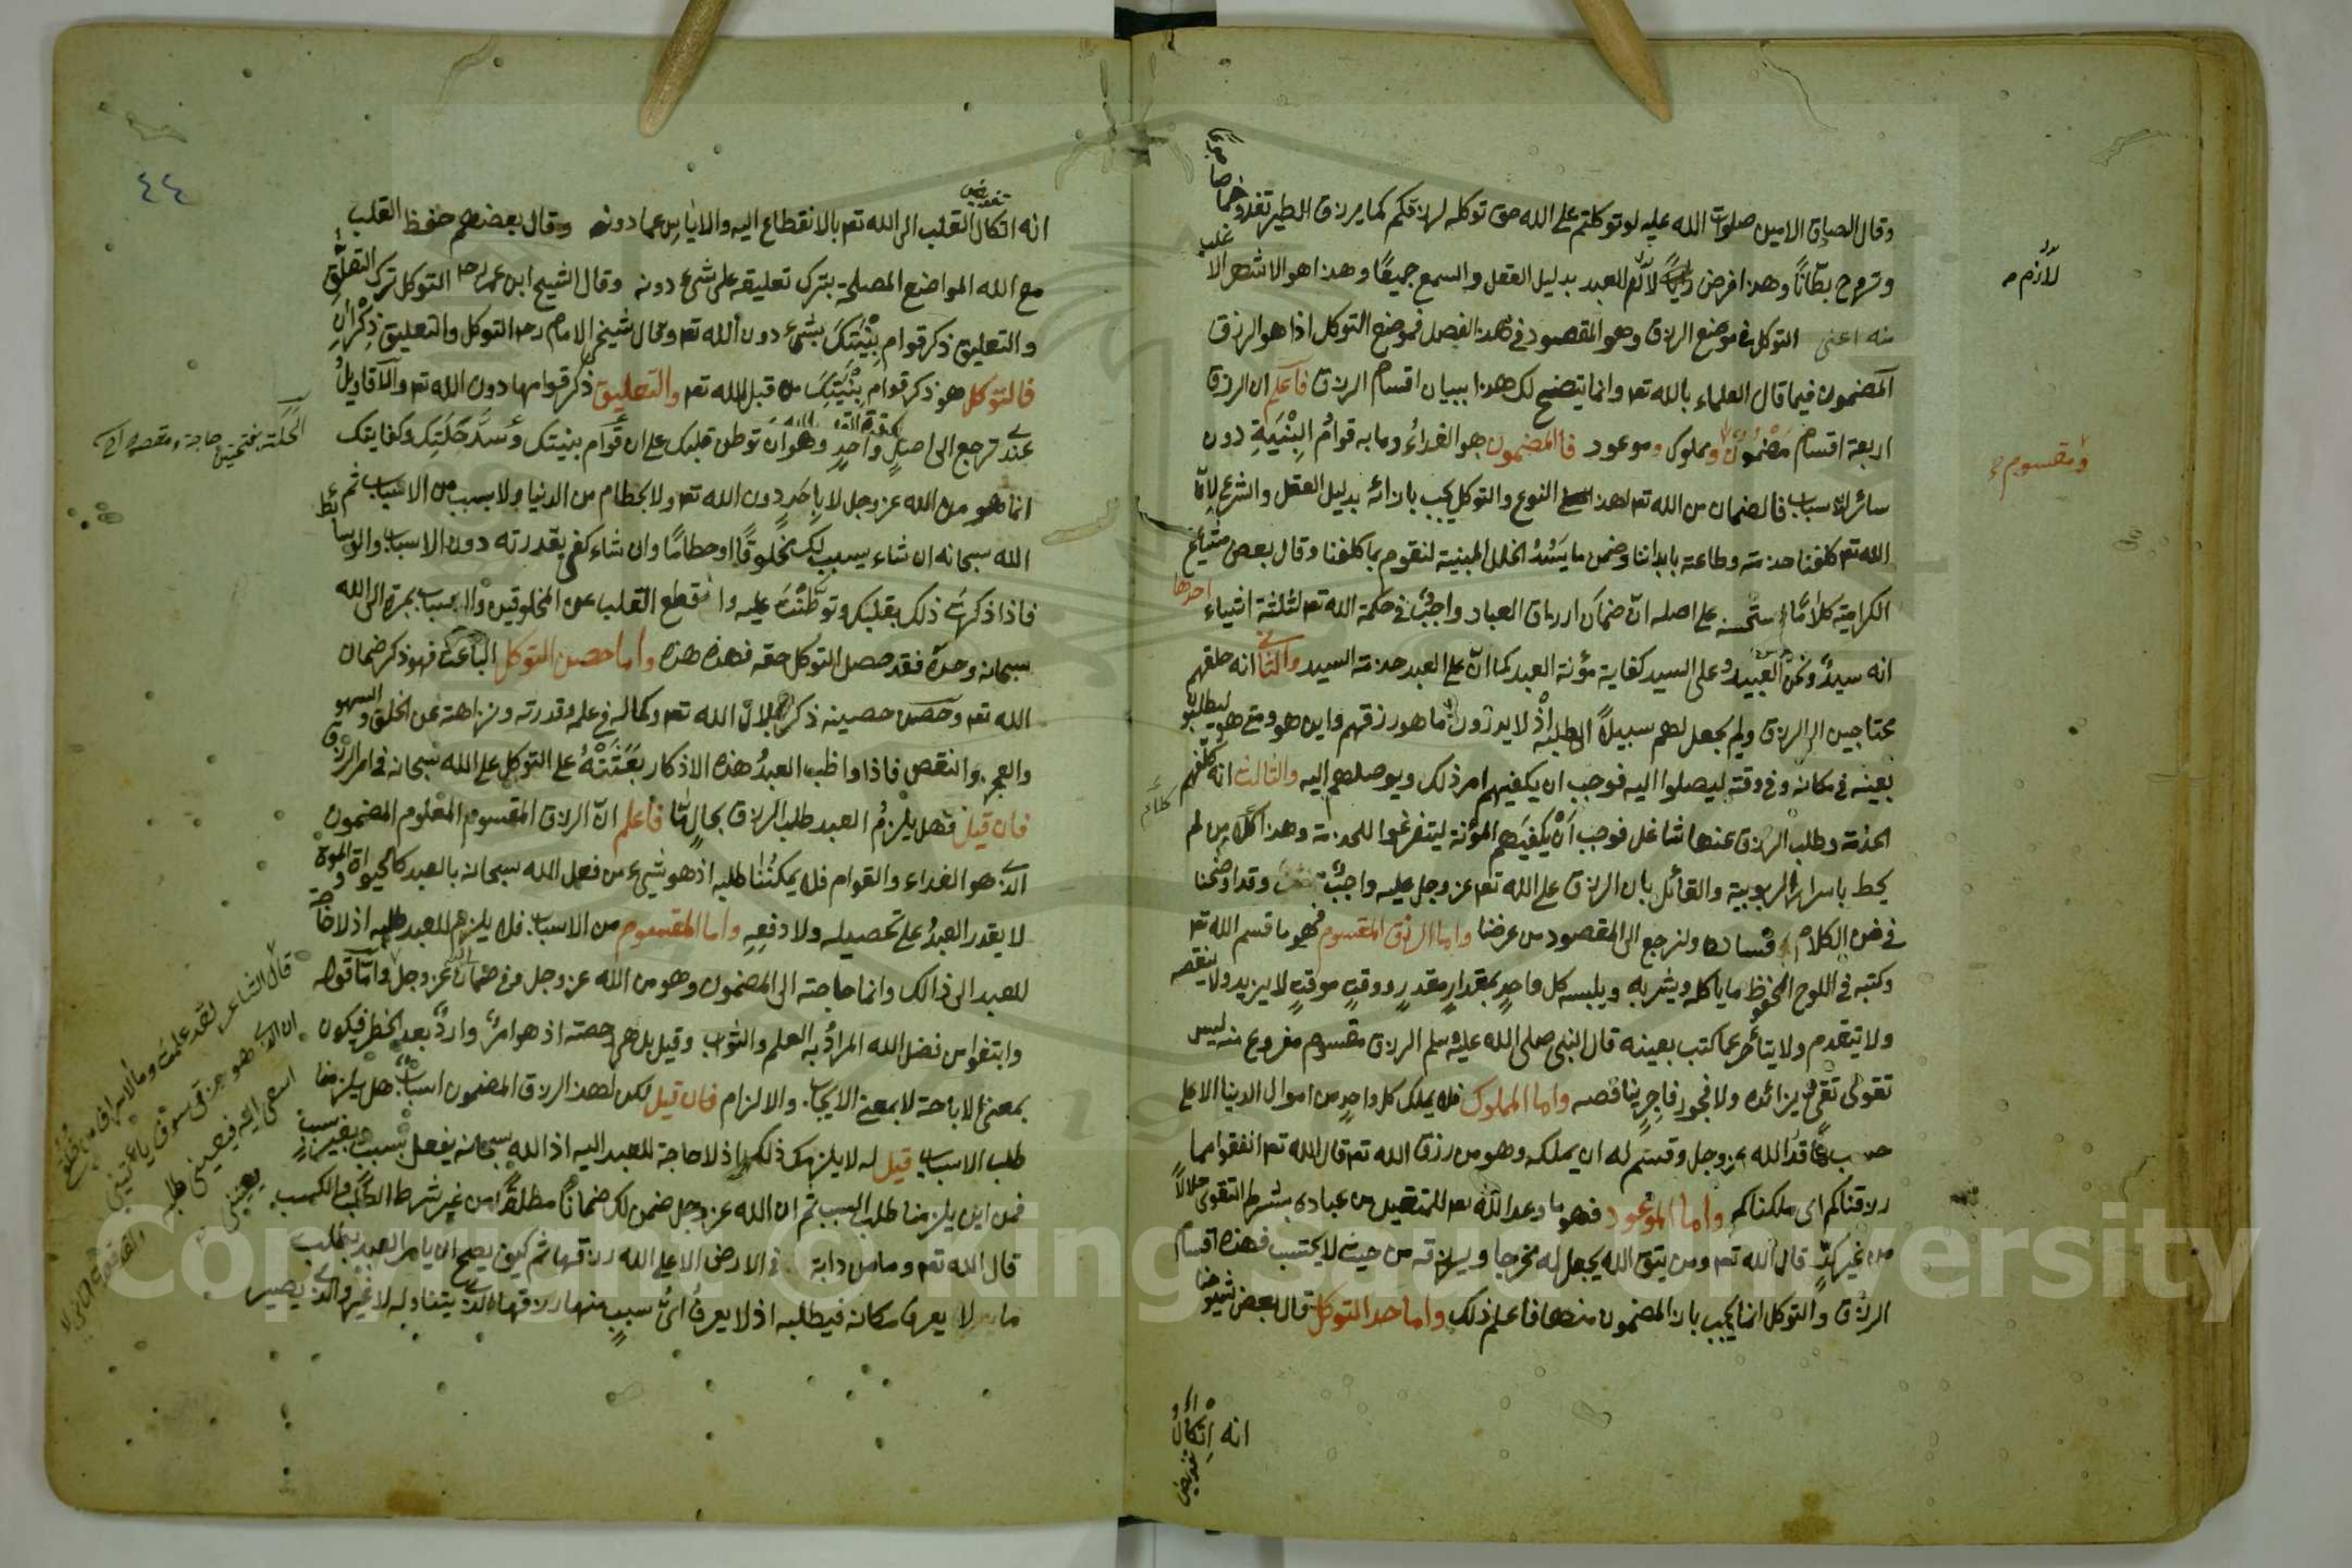 وقال الصادق الامين صلوات الله عليه لو توكلتم على الله حق توكله لرزقكم كما يرزق الطير تغدو خماصا
وتروح بطانًا وهذا فرض لازم للعبد بدليل العقل والسمع جميعًا وهذا هو الاشهر الاغلب
منه اعنى التوكل في موضع الرزق وهو المقصود في هذا الفصل فموضع التوكل اذا هو الرزق
المضمون فيما قال العلماء بالله تعه وانما يتضح لك هذا ببيان اقسام الرزق فاعلم ان الرزق
اربعة اقسام مضمون ومملوك وموعود فالمضمون هو الغداء وما به قوام البنية دون
سائر الاسباب فالضمان من الله تعه لهذا النوع والتوكل يجب بازائه بدليل العقل والشرع لان
الله تعه كلفنا خدمته وطاعته بابداننا وضمن ما يسد الخلل البنية لنقوم بما كلفنا وقال بعض مشايخ
الكرامية كلامًا مستحسنه على اصله ان ضمان ارزاق العباد واجب في حكمة الله تعه لثلثة اشياء احدها
انه سيد ونحن العبيد وعلى السيد كفاية مؤنة العبد كما ان على العبد خدمة السيد والثاني انه خلقهم
محتاجين الى الرزق ولم يجعل لهم سبيلًا الى طلبه اذ لا يدرون ما هو رزقهم واين هو ومتى هو ليطلبوا
بعينه في مكانه وفي وقته ليصلوا اليه فوجب ان يكفيهم امر ذلك ويوصلهم اليه والثالث انه كلفهم
الخدمة وطلب الرزق عنها شاغل فوجب ان يكفيهم المؤنة ليتفرغوا للخدمة وهذا كلام من لم
يحط باسرار الربوبية والقائل بان الرزق على الله تعه عز وجل عليه واجب وقد اوضحنا
في فن الكلام فساده ولنرجع الى المقصود من غرضنا واما الرزق المقسوم فهو ما قسم الله تعه
وكتبه في اللوح المحفوظ ما ياكله ويشربه ويلبسه كل واحد بمقدار مقدر ووقت موقت لا يزيد ولا ينقصه
ولا يتقدم ولا يتاخر عما كتب بعينه قال النبى صلى الله عليه وسلم الرزق مقسوم مفروغ منه ليس
تقوى تقي بزائده ولا فجور فاجر بناقصه واما المملوك فله يملك كل واحد من اموال الدنيا الا على
حسب ما قد الله عز وجل وقسم له ان يملكه وهو من رزق الله تعه قال الله تعه انفقوا مما
رزقناكم اى ملكناكم واما الموعود فهو ما وعد الله تعه للمتقين من عباده بشرط التقوى حلالًا
من غير كدّ قال الله تعه ومن يتق الله يجعل له مخرجا ويرزقه من حيث لا يحتسب فهذه اقسام
الرزق والتوكل انما يجب بازا المضمون منها فاعلم ذلك واما حد التوكل قال بعض شيوخنا
انه اتكال
لازم
ومقسوم
٤٤
انه اتكال القلب الى الله تعه بالانقطاع اليه والاياس عما دونه وقال بعضهم حفظ القلب
مع الله المواضع المصلحة بترك تعليقه على شئ دونه وقال الشيخ ابن عمر رحمه التوكل ترك التعلق
والتعليق ذكر قوام بنيتك بشئ دون الله تعه وقال شيخى الامام رحمه التوكل والتعليق ذكران
فالتوكل هو ذكر قوام بنيتك من قبل الله تعه والتعليق ذكر قوامها دون الله تعه والاقاويل
عندى ترجع الى اصل واحد وهو ان توطن قلبك على ان قوام بنيتك وسد خلتك وكفايتك
انما هو من الله عز وجل لا باحد دون الله تعه ولا بحطام من الدنيا ولا بسبب من الاسباب ثم
الله سبحانه ان شاء يسبب لك مخلوقًا او حطامًا وان شاء كفى بقدرته دون الاسباب والوسائط
فاذا ذكرت ذلك بقلبك وتوطنت عليه وانقطع القلب عن المخلوقين والاسباب بمرة الى الله
سبحانه وحده فقد حصل التوكل حقه فهذه هذه واما حصن التوكل الباعث فهو ذكر ضمان
الله تعه وحصن حصينه ذكر جلال الله تعه وكماله في علمه وقدرته ونزاهته عن الخلف والسهو
والعجز والنقص فاذا واظب العبد هذه الاذكار بعثته على التوكل على الله سبحانه في امر الرزق
فان قيل فهل يلزم العبد طلب الرزق بحال ما فاعلم ان الرزق المقسوم المعلوم المضمون
الذى هو الغداء والقوام فلا يمكننا طلبه اذ هو شئ من فعل الله سبحانه بالعبد كالحيوة والموت
لا يقدر العبد على تحصيله ولا دفعه واما المقسوم من الاسباب فلا يلزم للعبد طلبه اذ لا حاجة
للعبد الى ذالك وانما حاجته الى المضمون وهو من الله عز وجل وفي ضمان الله عز وجل واما قوله
وابتغوا من فضل الله المراد به العلم والثواب وقيل بل هى رخصته اذ هو امر وارد بعد الحظر فيكون
بمعنى الاباحة لا بمعنى الايجاب والالزام فان قيل لكن لهذا الرزق المضمون اسباب هل يلزمنا
طلب الاسباب قيل له لا يلزمك ذلك اذ لا حاجة للعبد اليه اذ الله سبحانه يفعل بسبب وبغير سبب
فمن اين يلزمنا طلب السبب ثم ان الله عز وجل ضمن لك ضمانًا مطلقًا من غير شرط الطلب والكسب
قال الله تعه وما من دابة في الارض الا على الله رزقها ثم كيف يصح ان يامر العبد بطلب
ما لا يعرف مكانه فيطلبه اذ لا يعرف اى سبب منها رزقها الذى يتناوله لا غير والذى يصير
قال الشاعر لقد علمت وما الاسراف من خلقى
ان الذى هو رزقى سوف ياتينى
اسعى اليه فيعيينى طلبه